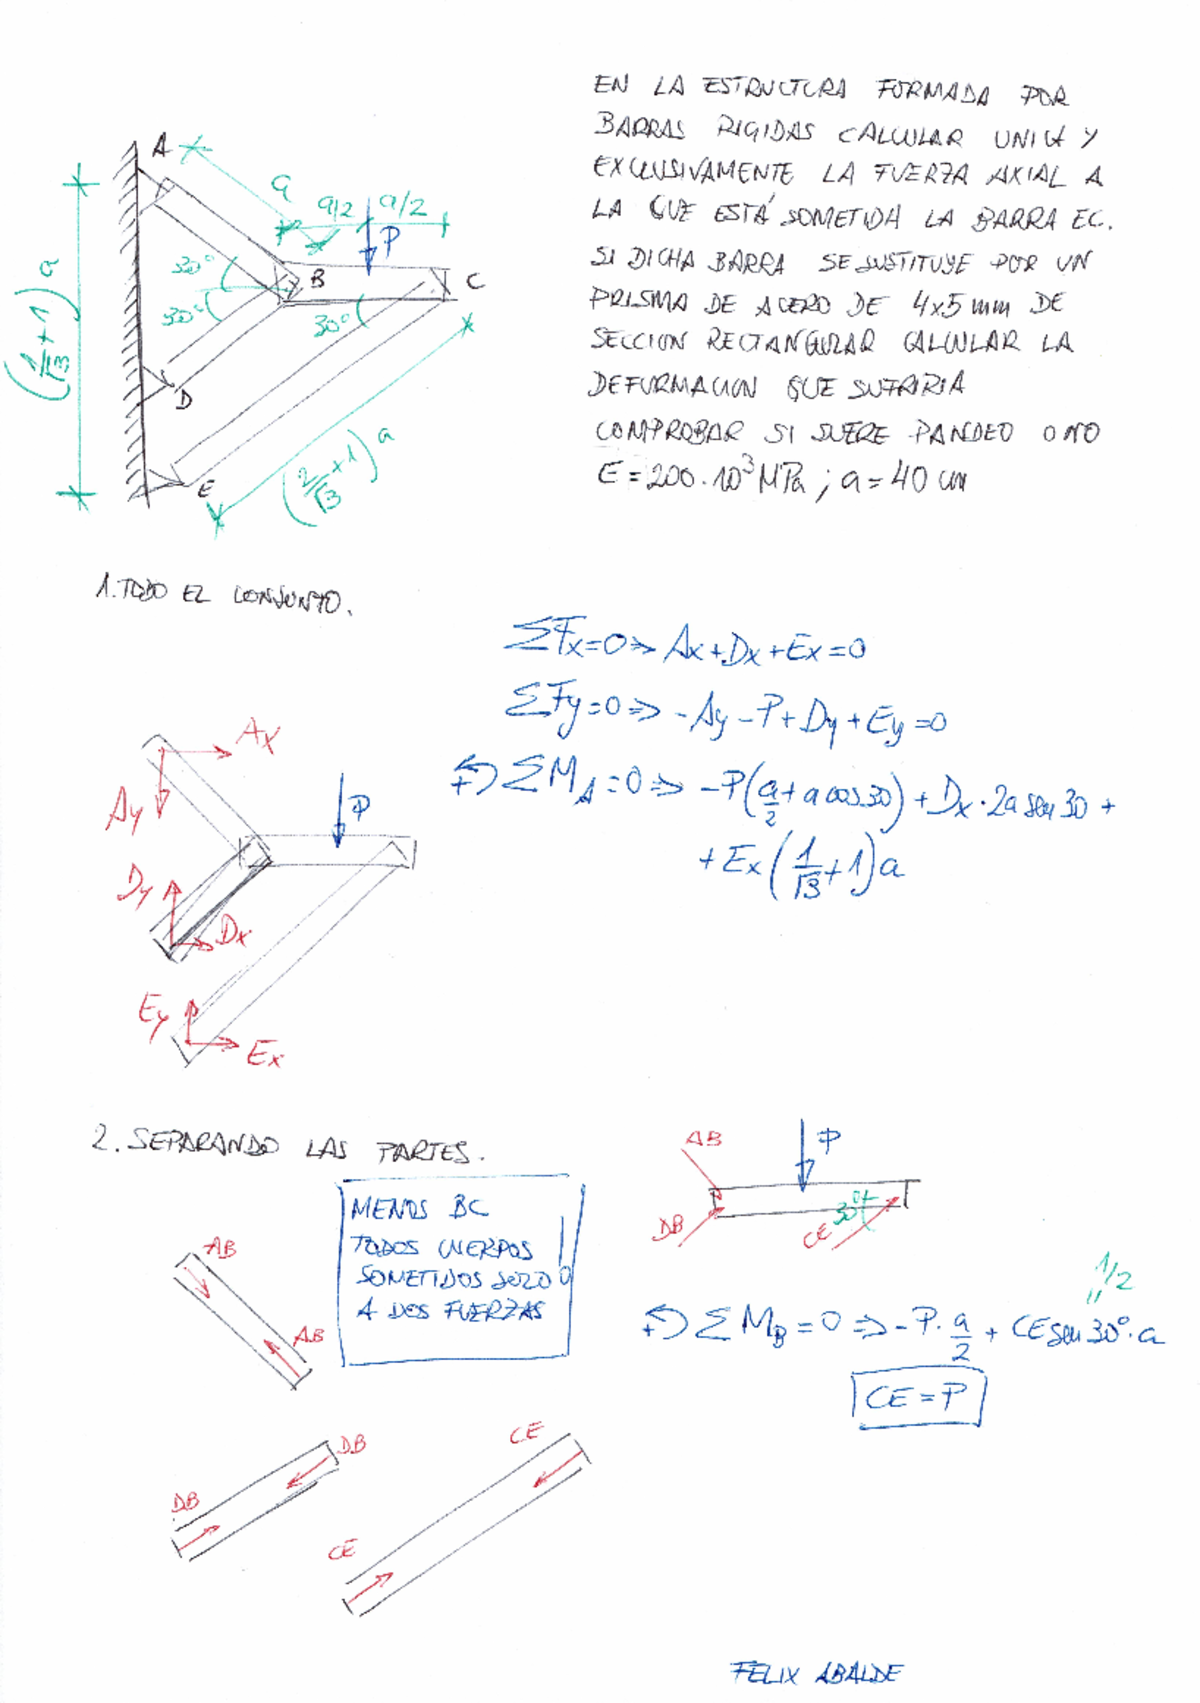 EN LA ESTRUCTURA FORMADA POR
BARRAS RIGIDAS CALCULAR UNICA Y
EXCLUSIVAMENTE LA FUERZA AXIAL A
LA QUE ESTÁ SOMETIDA LA BARRA EC.
SI DICHA BARRA SE SUSTITUYE POR UN
PRISMA DE ACERO DE 4x5 mm DE
SECCION RECTANGULAR CALCULAR LA
DEFORMACION QUE SUFRIRIA
COMPROBAR SI SUFRE PANDEO O NO
E = 200·10³ MPa ; a = 40 cm
A
a
a/2 a/2
P
B
C
30°
30°
30°
D
E
(1/√3 + 1) a
(2/√3 + 1) a
1. TODO EL CONJUNTO.
ΣFx = 0 => Ax + Dx + Ex = 0
ΣFy = 0 => -Ay - P + Dy + Ey = 0
ΣM_A = 0 => -P(a/2 + a cos 30) + Dx · 2a sen 30 +
+ Ex (1/√3 + 1) a
Ax
Ay
P
Dy
Dx
Ey
Ex
2. SEPARANDO LAS PARTES.
MENOS BC
TODOS CUERPOS
SOMETIDOS SOLO
A DOS FUERZAS
AB
P
DB
CE 30°
AB
AB
1/2
"
+ ΣM_B = 0 => -P · a/2 + CE sen 30° · a
CE = P
DB
DB
CE
CE
FELIX ABALDE